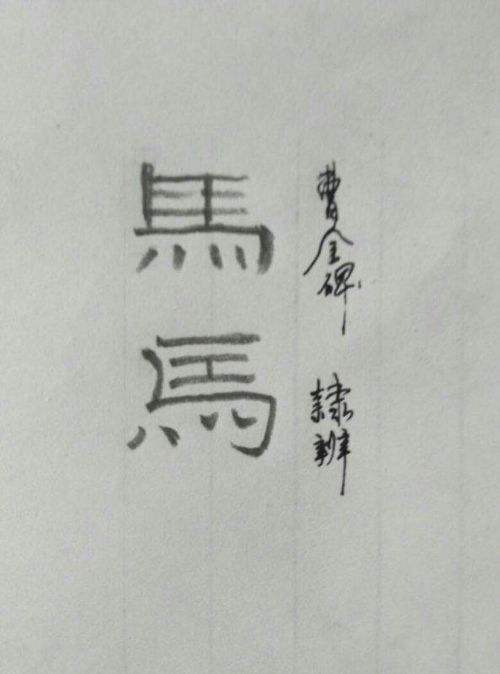 馬
曹全碑
馬
隸辨